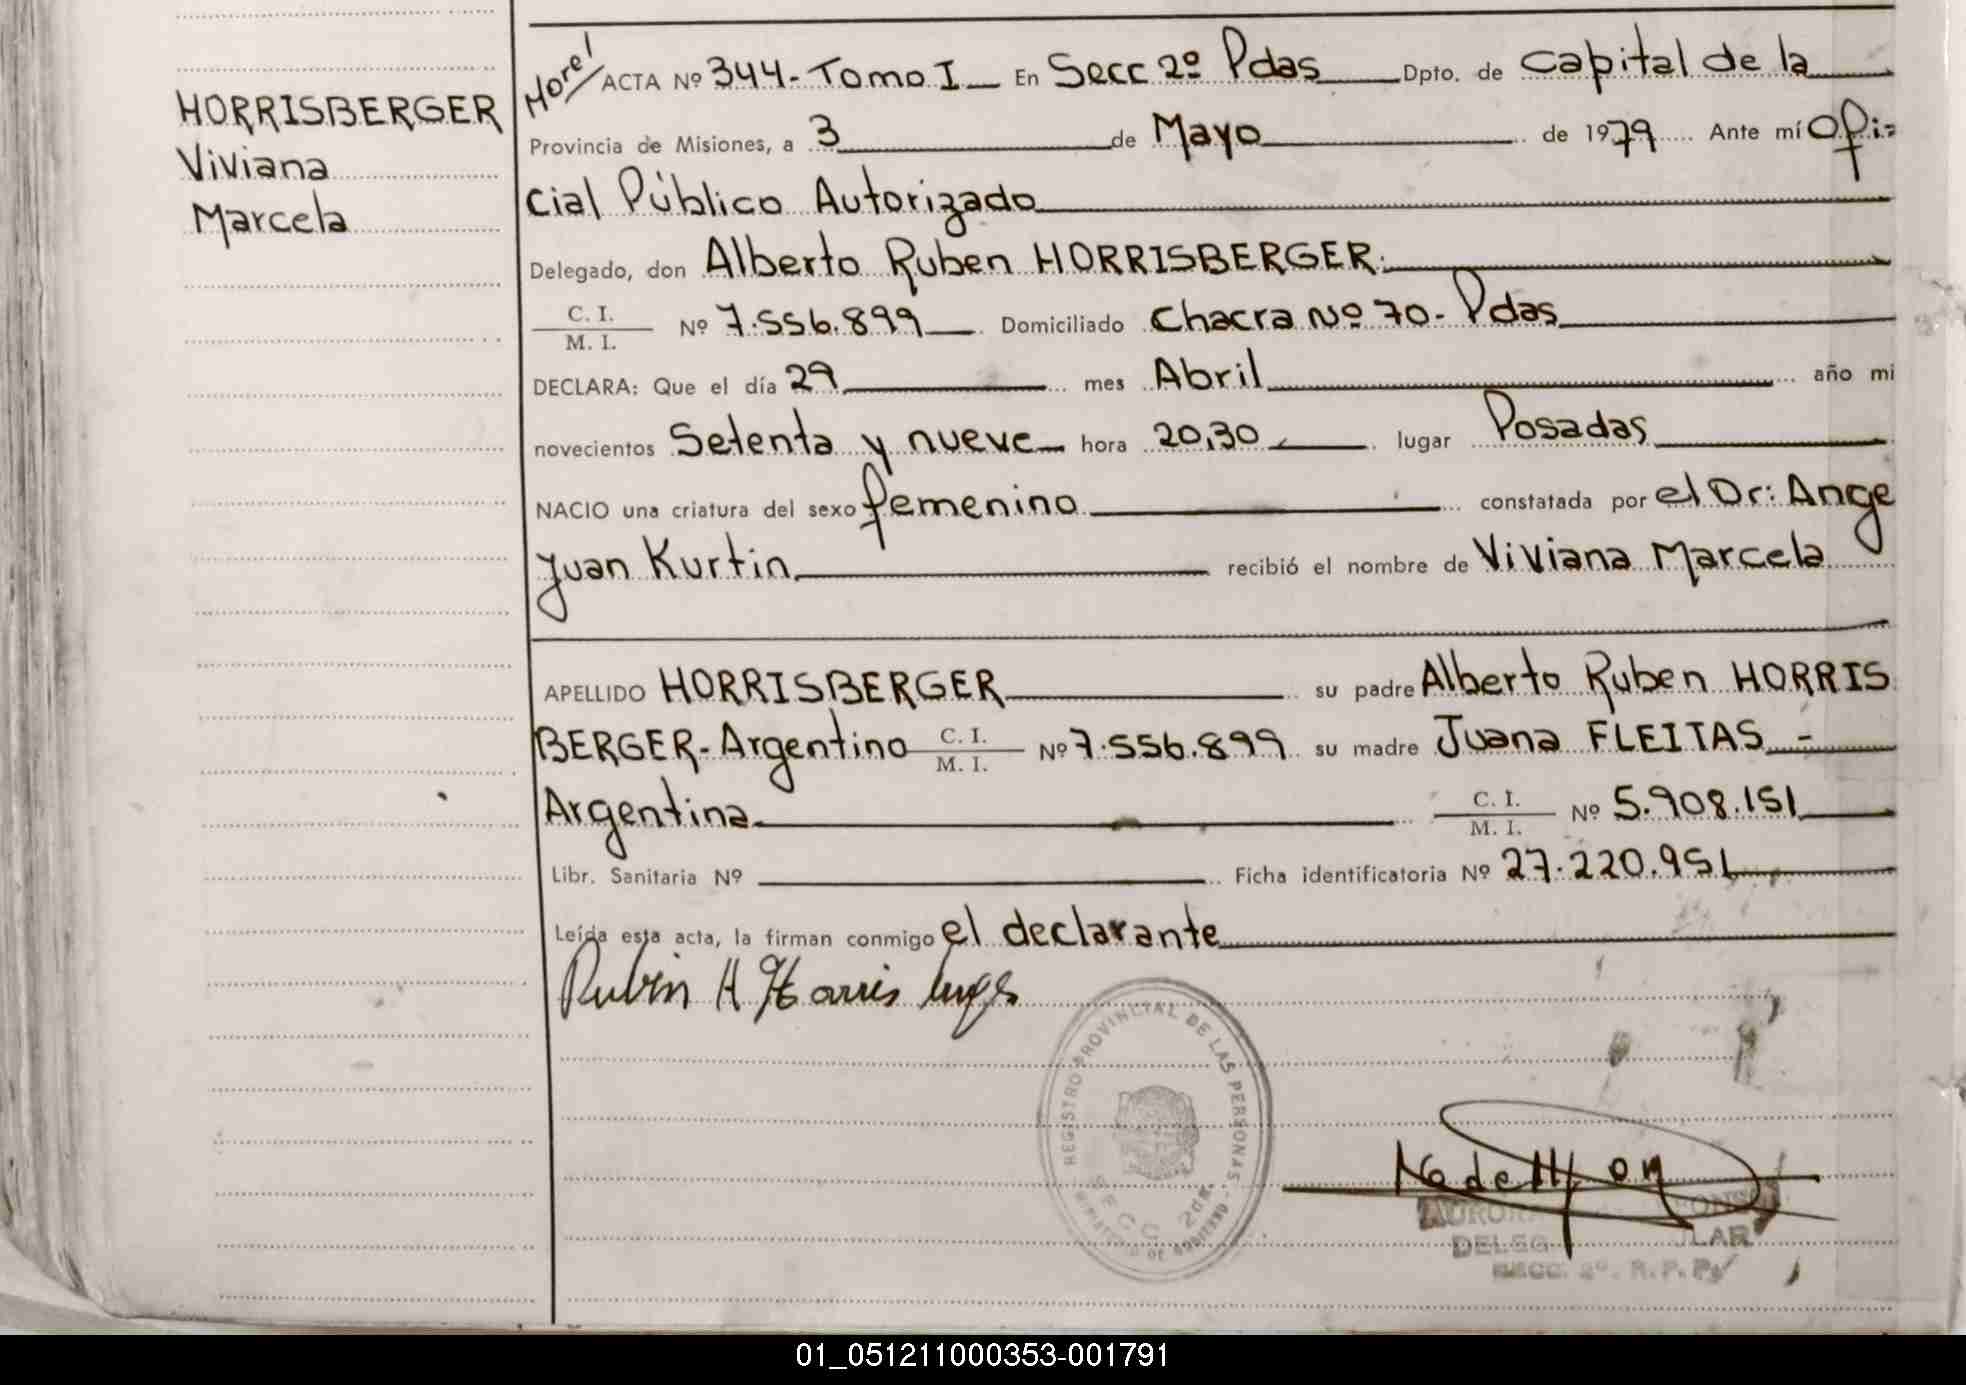 HORRISBERGER
Viviana
Marcela
ACTA Nº 344- Tomo I En Secc 2º Pdas Dpto. de Capital de la
Provincia de Misiones, a 3 de Mayo de 1979 Ante mí Ofi-
cial Público Autorizado
Delegado, don Alberto Ruben HORRISBERGER.
C. I.
M. I.
Nº 7.556.899 Domiciliado Chacra Nº 70- Pdas
DECLARA: Que el día 29 mes Abril año mi
novecientos Setenta y nueve hora 20,30 lugar Posadas
NACIO una criatura del sexo femenino constatada por el Dr: Ange
Juan Kurtin recibió el nombre de Viviana Marcela
APELLIDO HORRISBERGER su padre Alberto Ruben HORRIS
BERGER- Argentino C. I. M. I. Nº 7.556.899 su madre Juana FLEITAS -
Argentina C. I. M. I. Nº 5.908.151
Libr. Sanitaria Nº Ficha identificatoria Nº 27.220.951
Leída esta acta, la firman conmigo el declarante
REGISTRO PROVINCIAL DE LAS PERSONAS - MINISTERIO DE GOBIERNO
SECC 2da.
AURORA
DELEG LAR
SECC. 2º. R.P.P.
01_051211000353-001791